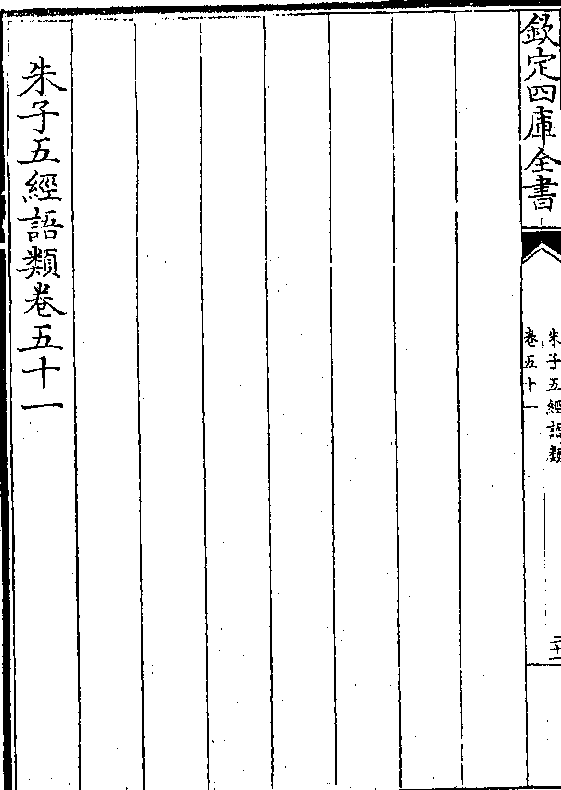 欽定四庫全書
朱子五經語類
卷五十一
朱子五經語類卷五十一